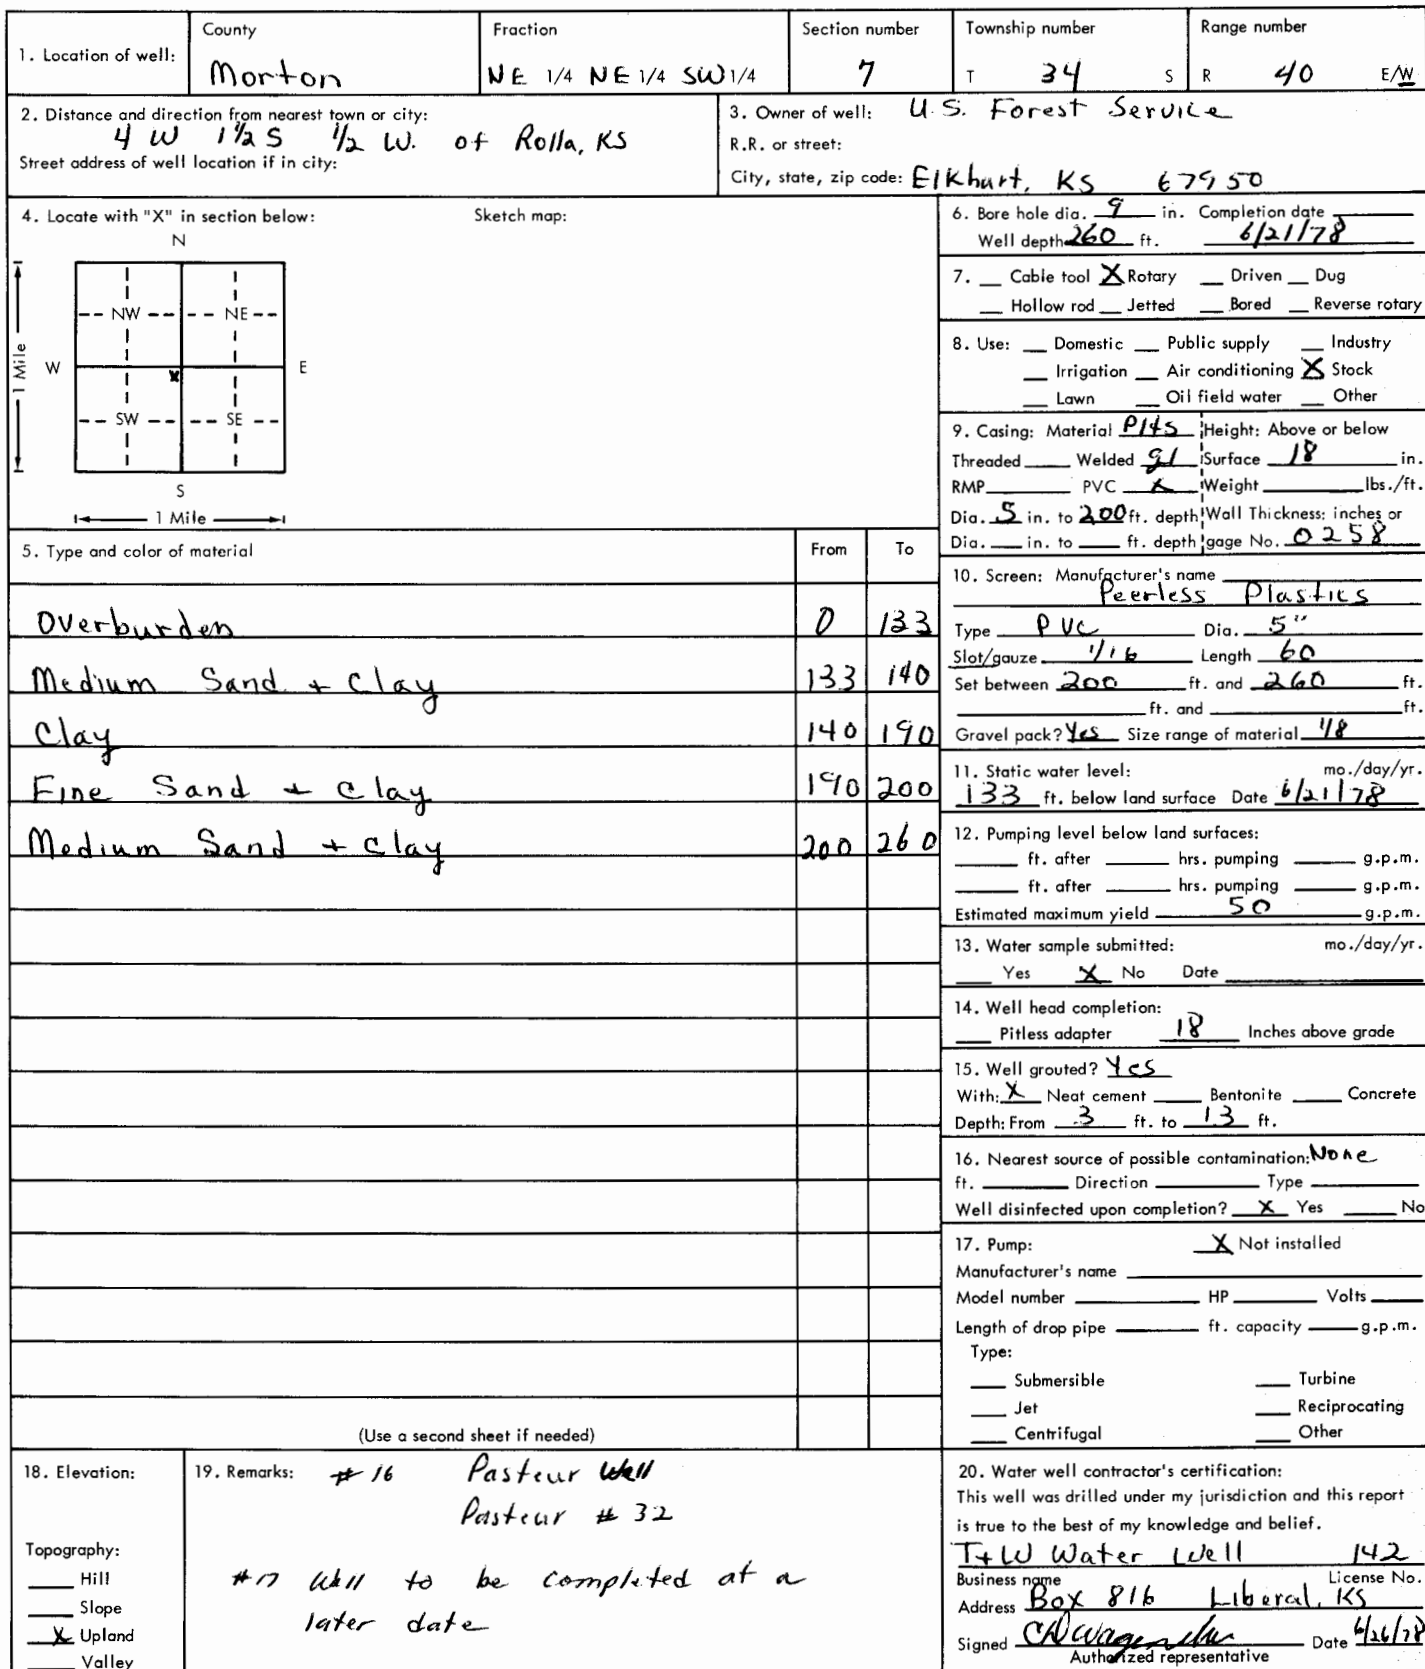 1. Location of well:
County
Morton
Fraction
NE 1/4 NE 1/4 SW 1/4
Section number
7
Township number
T 34 S
Range number
R 40 E/W
2. Distance and direction from nearest town or city:
4 W 1 1/2 S 1/2 W. of Rolla, KS
Street address of well location if in city:
3. Owner of well: U.S. Forest Service
R.R. or street:
City, state, zip code: Elkhart, KS 67950
4. Locate with "X" in section below:
Sketch map:
N
NW NE
1 Mile
W
X
E
SW SE
S
1 Mile
5. Type and color of material From To
Overburden 0 133
Medium Sand + Clay 133 140
Clay 140 190
Fine Sand + Clay 190 200
Medium Sand + Clay 200 260
(Use a second sheet if needed)
6. Bore hole dia. 9 in. Completion date
Well depth 260 ft. 6/21/78
7. Cable tool X Rotary Driven Dug
Hollow rod Jetted Bored Reverse rotary
8. Use: Domestic Public supply Industry
Irrigation Air conditioning X Stock
Lawn Oil field water Other
9. Casing: Material Height: Above or below
Threaded Welded Surface 18 in.
RMP PVC X Weight lbs./ft.
Dia. 5 in. to 200 ft. depth Wall Thickness: inches or
Dia. in. to ft. depth gage No. 0258
10. Screen: Manufacturer's name
Peerless Plastics
Type PVC Dia. 5"
Slot/gauze 1/16 Length 60
Set between 200 ft. and 260 ft.
ft. and ft.
Gravel pack? Yes Size range of material 1/8
11. Static water level: mo./day/yr.
133 ft. below land surface Date 6/21/78
12. Pumping level below land surfaces:
ft. after hrs. pumping g.p.m.
ft. after hrs. pumping g.p.m.
Estimated maximum yield 50 g.p.m.
13. Water sample submitted: mo./day/yr.
Yes X No Date
14. Well head completion:
Pitless adapter 18 Inches above grade
15. Well grouted? Yes
With: X Neat cement Bentonite Concrete
Depth: From 3 ft. to 13 ft.
16. Nearest source of possible contamination: None
ft. Direction Type
Well disinfected upon completion? X Yes No
17. Pump: X Not installed
Manufacturer's name
Model number HP Volts
Length of drop pipe ft. capacity g.p.m.
Type:
Submersible Turbine
Jet Reciprocating
Centrifugal Other
18. Elevation:
Topography:
Hill
Slope
X Upland
Valley
19. Remarks: # 16 Pasteur Well
Pasteur # 32
#17 Well to be completed at a
later date
20. Water well contractor's certification:
This well was drilled under my jurisdiction and this report
is true to the best of my knowledge and belief.
T+W Water Well 142
Business name License No.
Address Box 816 Liberal, KS
Signed Date 6/26/78
Authorized representative